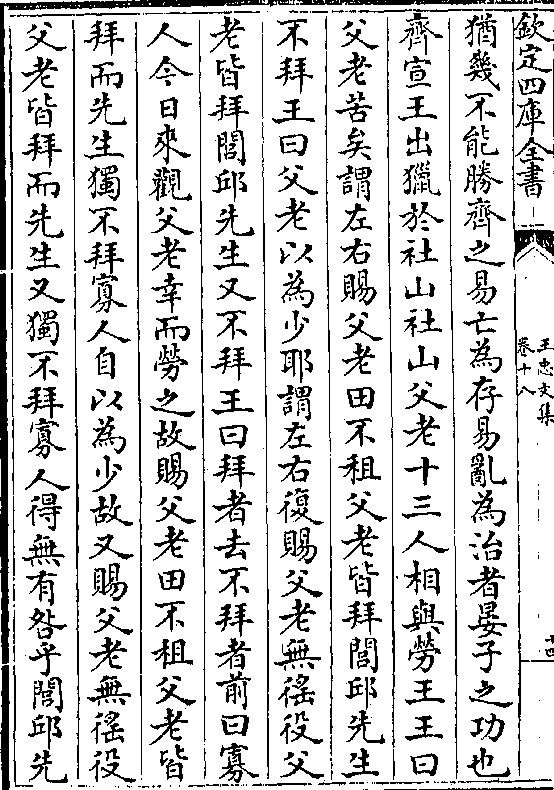 欽定四庫全書
王忠文集
卷十八
十四
猶幾不能勝齊之易亡為存易亂為治者晏子之功也
齊宣王出獵於社山社山父老十三人相與勞王王曰
父老苦矣謂左右賜父老田不租父老皆拜閭邱先生
不拜王曰父老以為少耶謂左右復賜父老無徭役父
老皆拜閭邱先生又不拜王曰拜者去不拜者前曰寡
人今日來觀父老幸而勞之故賜父老田不租父老皆
拜而先生獨不拜寡人自以為少故又賜父老無徭役
父老皆拜而先生又獨不拜寡人得無有咎乎閭邱先